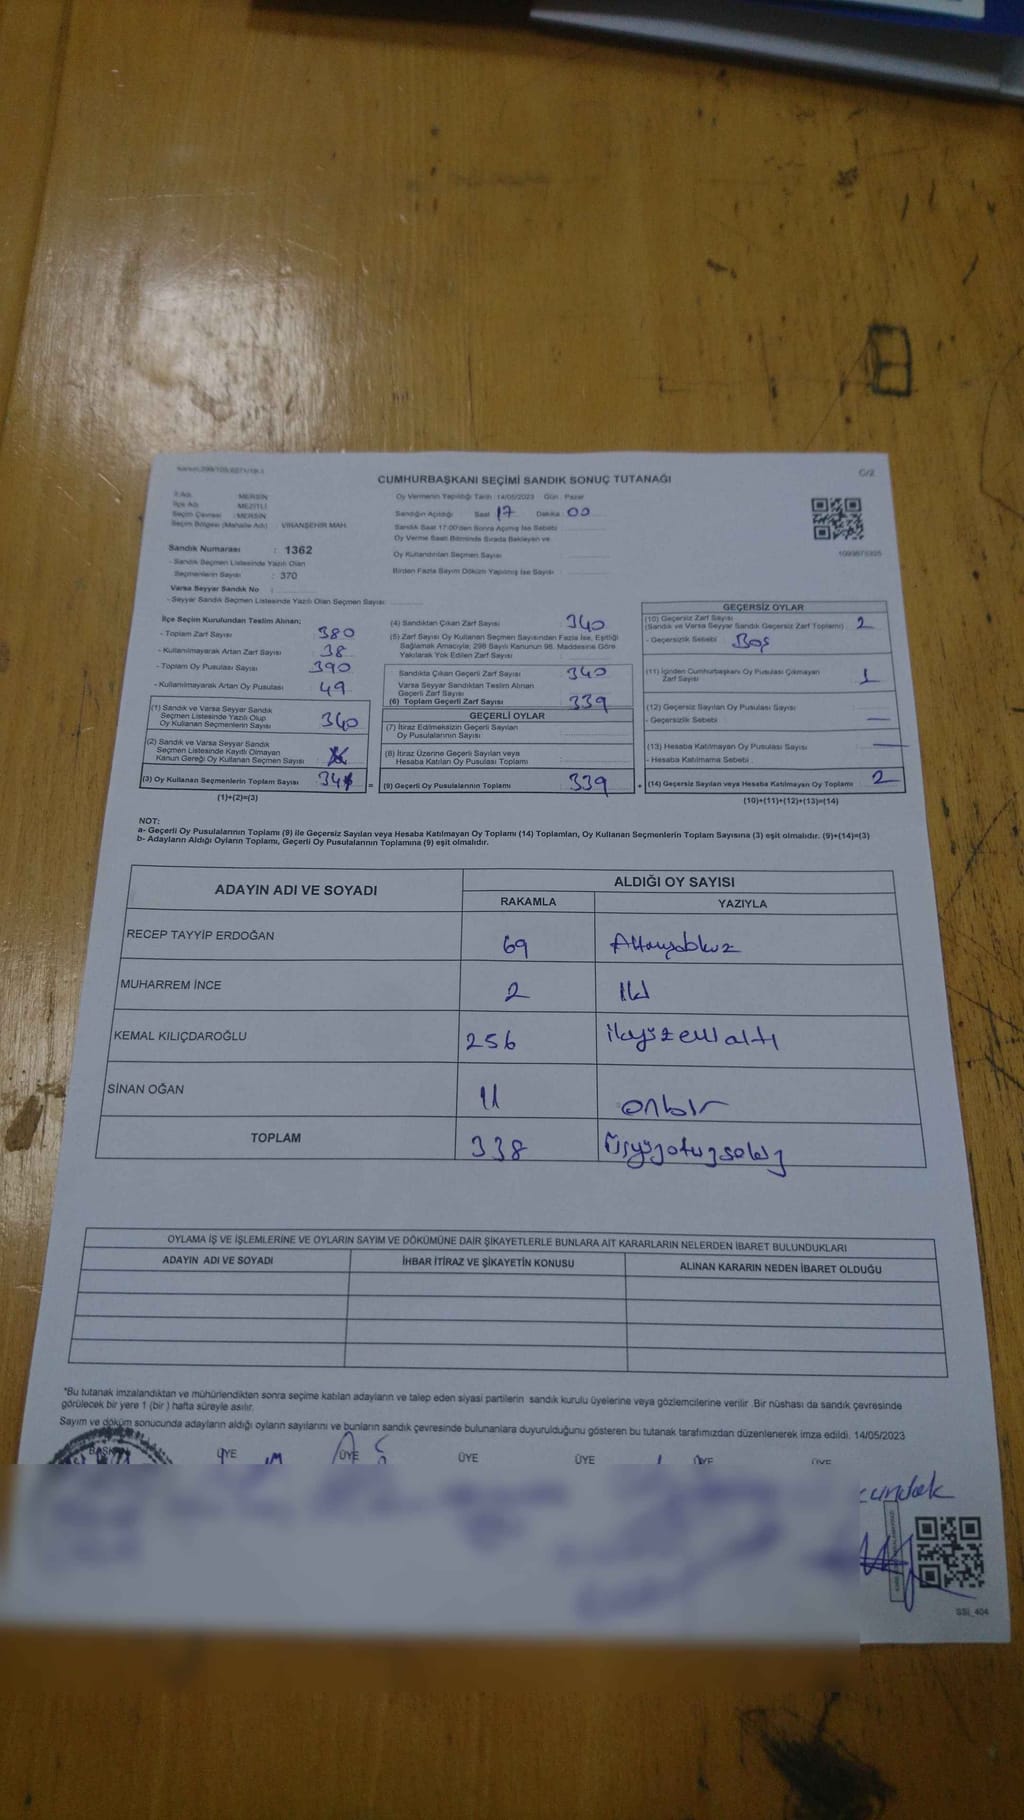 CUMHURBAŞKANI SEÇİMİ SANDIK SONUÇ TUTANAĞI
C/2
İl Adı : MERSİN
İlçe Adı : MEZİTLİ
Seçim Çevresi : MERSİN
Seçim Bölgesi (Mahalle Adı) : VİRANŞEHİR MAH.
Sandık Numarası : 1362
- Sandık Seçmen Listesinde Yazılı Olan
Seçmenlerin Sayısı : 370
Varsa Seyyar Sandık No :
- Seyyar Sandık Seçmen Listesinde Yazılı Olan Seçmen Sayısı:
Oy Vermenin Yapıldığı Tarih :14/05/2023 Gün : Pazar
Sandığın Açıldığı Saat : 17 Dakika : 00
Sandık Saat 17:00'den Sonra Açılmış İse Sebebi :
Oy Verme Saati Bitiminde Sırada Bekleyen ve
Oy Kullandırılan Seçmen Sayısı :
Birden Fazla Sayım Döküm Yapılmış İse Sayısı :
İlçe Seçim Kurulundan Teslim Alınan;
- Toplam Zarf Sayısı : 380
- Kullanılmayarak Artan Zarf Sayısı : 38
- Toplam Oy Pusulası Sayısı : 390
- Kullanılmayarak Artan Oy Pusulası : 49
(1) Sandık ve Varsa Seyyar Sandık
Seçmen Listesinde Yazılı Olup
Oy Kullanan Seçmenlerin Sayısı : 340
(2) Sandık ve Varsa Seyyar Sandık
Seçmen Listesinde Kayıtlı Olmayan
Kanun Gereği Oy Kullanan Seçmen Sayısı :
(3) Oy Kullanan Seçmenlerin Toplam Sayısı :
(1)+(2)=(3)
(4) Sandıktan Çıkan Zarf Sayısı : 340
(5) Zarf Sayısı Oy Kullanan Seçmen Sayısından Fazla İse, Eşitliği
Sağlamak Amacıyla; 298 Sayılı Kanunun 98. Maddesine Göre
Yakılarak Yok Edilen Zarf Sayısı :
Sandıkta Çıkan Geçerli Zarf Sayısı : 340
Varsa Seyyar Sandıktan Teslim Alınan
Geçerli Zarf Sayısı :
(6) Toplam Geçerli Zarf Sayısı : 339
GEÇERLİ OYLAR
(7) İtiraz Edilmeksizin Geçerli Sayılan
Oy Pusulalarının Sayısı :
(8) İtiraz Üzerine Geçerli Sayılan veya
Hesaba Katılan Oy Pusulası Toplamı :
(9) Geçerli Oy Pusulalarının Toplamı : 339
GEÇERSİZ OYLAR
(10) Geçersiz Zarf Sayısı
(Sandık ve Varsa Seyyar Sandık Geçersiz Zarf Toplamı) : 2
- Geçersizlik Sebebi : Boş
(11) İçinden Cumhurbaşkanı Oy Pusulası Çıkmayan
Zarf Sayısı : 1
(12) Geçersiz Sayılan Oy Pusulası Sayısı :
- Geçersizlik Sebebi : —
(13) Hesaba Katılmayan Oy Pusulası Sayısı : —
- Hesaba Katılmama Sebebi :
(14) Geçersiz Sayılan veya Hesaba Katılmayan Oy Toplamı : 2
(10)+(11)+(12)+(13)=(14)
NOT:
a- Geçerli Oy Pusulalarının Toplamı (9) ile Geçersiz Sayılan veya Hesaba Katılmayan Oy Toplamı (14) Toplamları, Oy Kullanan Seçmenlerin Toplam Sayısına (3) eşit olmalıdır. (9)+(14)=(3)
b- Adayların Aldığı Oyların Toplamı, Geçerli Oy Pusulalarının Toplamına (9) eşit olmalıdır.
ADAYIN ADI VE SOYADI
ALDIĞI OY SAYISI
RAKAMLA YAZIYLA
RECEP TAYYİP ERDOĞAN 69 Altmışdokuz
MUHARREM İNCE 2 İki
KEMAL KILIÇDAROĞLU 256 ikiyüzelli altı
SİNAN OĞAN 11 onbir
TOPLAM 338 Üçyüzotuzsekiz
OYLAMA İŞ VE İŞLEMLERİNE VE OYLARIN SAYIM VE DÖKÜMÜNE DAİR ŞİKAYETLERLE BUNLARA AİT KARARLARIN NELERDEN İBARET BULUNDUKLARI
ADAYIN ADI VE SOYADI İHBAR İTİRAZ VE ŞİKAYETİN KONUSU ALINAN KARARIN NEDEN İBARET OLDUĞU
*Bu tutanak imzalandıktan ve mühürlendikten sonra seçime katılan adayların ve talep eden siyasi partilerin sandık kurulu üyelerine veya gözlemcilerine verilir. Bir nüshası da sandık çevresinde
görülecek bir yere 1 (bir ) hafta süreyle asılır.
Sayım ve döküm sonucunda adayların aldığı oyların sayılarını ve bunların sandık çevresinde bulunanlara duyurulduğunu gösteren bu tutanak tarafımızdan düzenlenerek imza edildi. 14/05/2023
BAŞKAN ÜYE ÜYE ÜYE ÜYE ÜYE ÜYE
SSİ_404